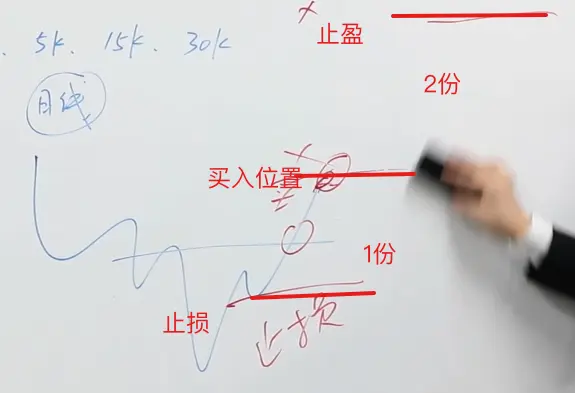 止盈
5k. 15k. 30k
2份
日线
买入位置
1份
止损
止损